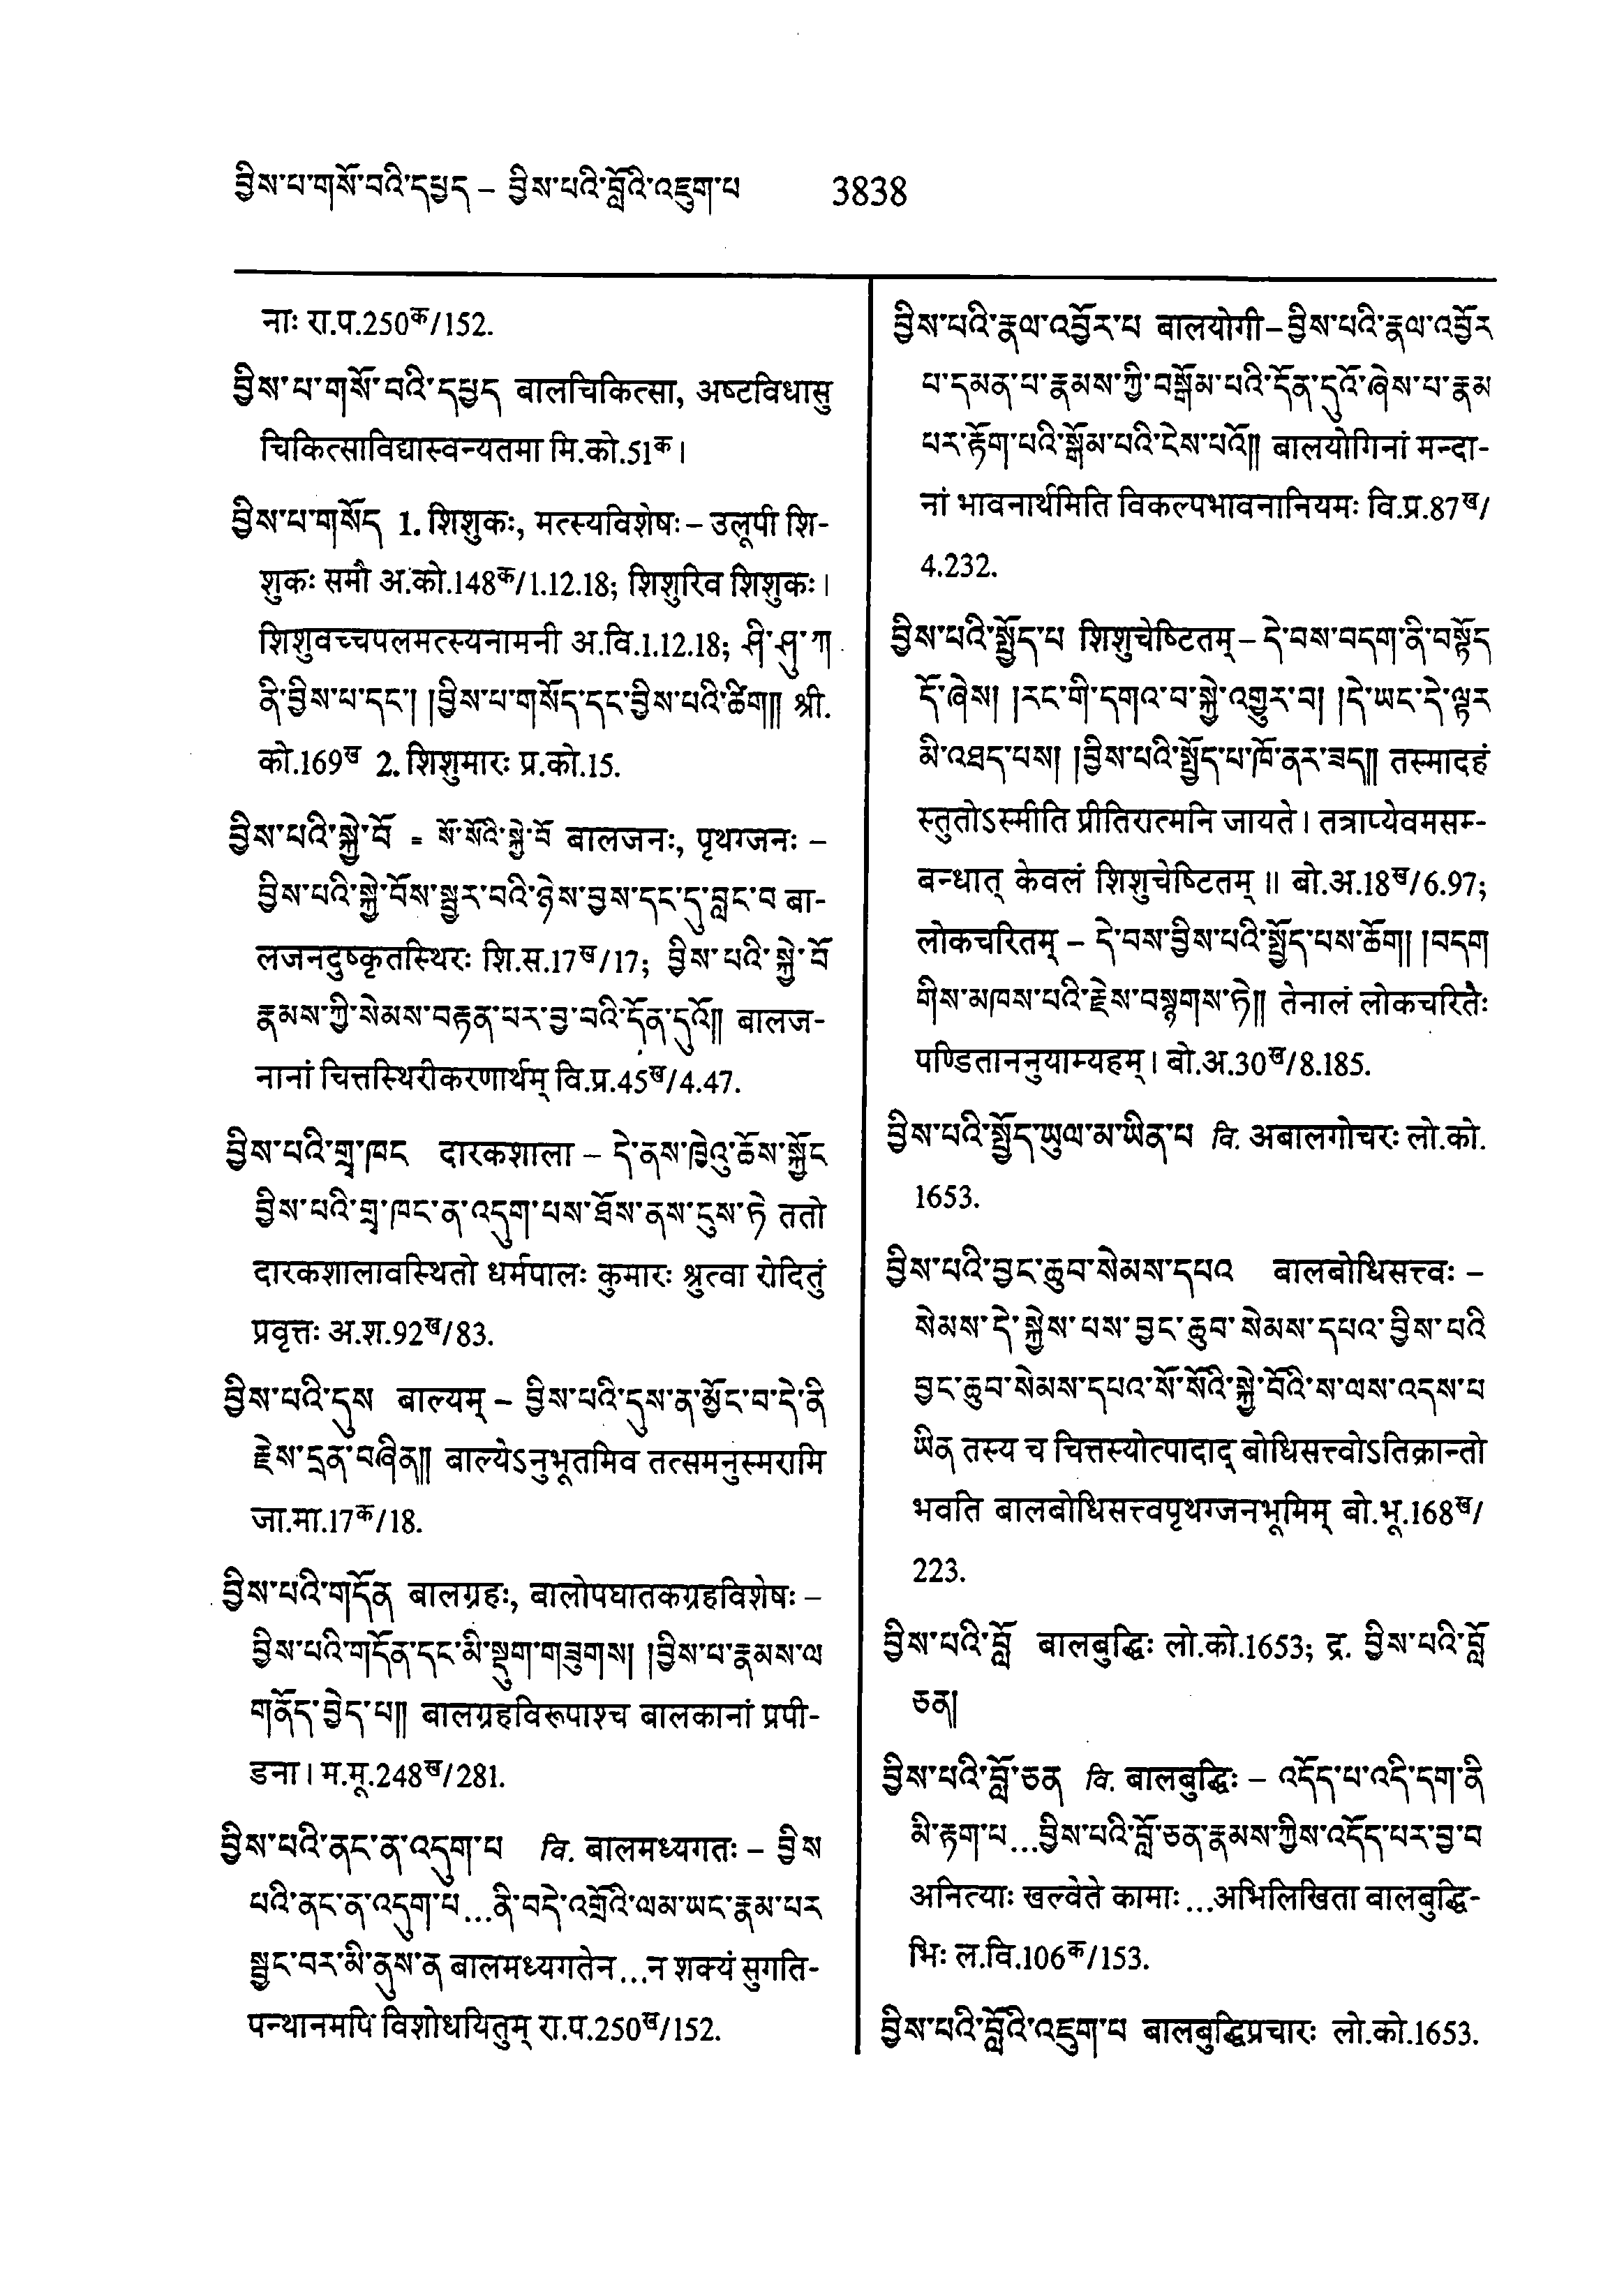 བྱིས་པ་གསོ་བའི་དཔྱད – བྱིས་པའི་བློའི་འཇུག་པ 3838
नाः रा.प.250क/152.
བྱིས་པ་གསོ་བའི་དཔྱད बालचिकित्सा, अष्टविधासु
चिकित्साविद्यास्वन्यतमा मि.को.51क।
བྱིས་པ་གསོད 1. शिशुकः, मत्स्यविशेषः – उलूपी शि-
शुकः समौ अ.को.148क/1.12.18; शिशुरिव शिशुकः।
शिशुवच्चपलमत्स्यनामनी अ.वि.1.12.18; ཤི་ཤུ་ཀ
ནི་བྱིས་པ་དང་། །བྱིས་པ་གསོད་དང་བྱིས་པའི་ཚིག། श्री.
को.169ख 2. शिशुमारः प्र.को.15.
བྱིས་པའི་སྐྱེ་བོ = སོ་སོའི་སྐྱེ་བོ बालजनः, पृथग्जनः –
བྱིས་པའི་སྐྱེ་བོས་སྦྱར་བའི་ཉེས་བྱས་དང་དུ་བླང་བ बा-
लजनदुष्कृतस्थिरः शि.स.17ख/17; བྱིས་པའི་སྐྱེ་བོ
རྣམས་ཀྱི་སེམས་བརྟན་པར་བྱ་བའི་དོན་དུའོ།། बालज-
नानां चित्तस्थिरीकरणार्थम् वि.प्र.45ख/4.47.
བྱིས་པའི་གྲྭ་ཁང दारकशाला – དེ་ནས་ཁྱེའུ་ཆོས་སྐྱོང
བྱིས་པའི་གྲྭ་ཁང་ན་འདུག་པས་ཐོས་ནས་ངུས་ཏེ ततो
दारकशालावस्थितो धर्मपालः कुमारः श्रुत्वा रोदितुं
प्रवृत्तः अ.श.92ख/83.
བྱིས་པའི་དུས बाल्यम् – བྱིས་པའི་དུས་ན་མྱོང་བ་དེ་ནི
རྗེས་དྲན་བཞིན།། बाल्येऽनुभूतमिव तत्समनुस्मरामि
जा.मा.17क/18.
བྱིས་པའི་གདོན बालग्रहः, बालोपघातकग्रहविशेषः –
བྱིས་པའི་གདོན་དང་མི་སྡུག་གཟུགས། །བྱིས་པ་རྣམས་ལ
གནོད་བྱེད་པ།། बालग्रहविरूपाश्च बालकानां प्रपी-
डना। म.मू.248ख/281.
བྱིས་པའི་ནང་ན་འདུག་པ वि. बालमध्यगतः – བྱིས
པའི་ནང་ན་འདུག་པ...ནི་བདེ་འགྲོའི་ལམ་ཡང་རྣམ་པར
སྦྱང་བར་མི་ནུས་ན बालमध्यगतेन...न शक्यं सुगति-
पन्थानमपि विशोधयितुम् रा.प.250ख/152.
བྱིས་པའི་རྣལ་འབྱོར་པ बालयोगी – བྱིས་པའི་རྣལ་འབྱོར
པ་དམན་པ་རྣམས་ཀྱི་བསྒོམ་པའི་དོན་དུའོ་ཞེས་པ་རྣམ
པར་རྟོག་པའི་སྒོམ་པའི་ངེས་པའོ།། बालयोगिनां मन्दा-
नां भावनार्थमिति विकल्पभावनानियमः वि.प्र.87ख/
4.232.
བྱིས་པའི་སྤྱོད་པ शिशुचेष्टितम् – དེ་བས་བདག་ནི་བསྟོད
དོ་ཞེས། །རང་གི་དགའ་བ་སྐྱེ་འགྱུར་བ། །དེ་ཡང་དེ་ལྟར
མི་འཐད་པས། །བྱིས་པའི་སྤྱོད་པ་ཁོ་ནར་ཟད།། तस्मादहं
स्तुतोऽस्मीति प्रीतिरात्मनि जायते। तत्राप्येवमसम्-
बन्धात् केवलं शिशुचेष्टितम्॥ बो.अ.18ख/6.97;
लोकचरितम् – དེ་བས་བྱིས་པའི་སྤྱོད་པས་ཆོག། །བདག
གིས་མཁས་པའི་རྗེས་བསྙགས་ཏེ།། तेनालं लोकचरितैः
पण्डिताननुयाम्यहम्। बो.अ.30ख/8.185.
བྱིས་པའི་སྤྱོད་ཡུལ་མ་ཡིན་པ वि. अबालगोचरः लो.को.
1653.
བྱིས་པའི་བྱང་ཆུབ་སེམས་དཔའ बालबोधिसत्त्वः –
སེམས་དེ་སྐྱེས་པས་བྱང་ཆུབ་སེམས་དཔའ་བྱིས་པའི
བྱང་ཆུབ་སེམས་དཔའ་སོ་སོའི་སྐྱེ་བོའི་ས་ལས་འདས་པ
ཡིན तस्य च चित्तस्योत्पादाद् बोधिसत्त्वोऽतिक्रान्तो
भवति बालबोधिसत्त्वपृथग्जनभूमिम् बो.भू.168ख/
223.
བྱིས་པའི་བློ बालबुद्धिः लो.को.1653; द्र. བྱིས་པའི་བློ
ཅན།
བྱིས་པའི་བློ་ཅན वि. बालबुद्धिः – འདོད་པ་འདི་དག་ནི
མི་རྟག་པ...བྱིས་པའི་བློ་ཅན་རྣམས་ཀྱིས་འདོད་པར་བྱ་བ
अनित्याः खल्वेते कामाः...अभिलिखिता बालबुद्धि-
भिः ल.वि.106क/153.
བྱིས་པའི་བློའི་འཇུག་པ बालबुद्धिप्रचारः लो.को.1653.